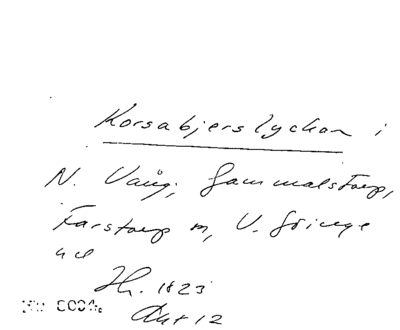 Korsabjerslyckan i
N. Vång, Gammalstorp,
Farstorp m, V. Göinge
hd
1823
Akt 12